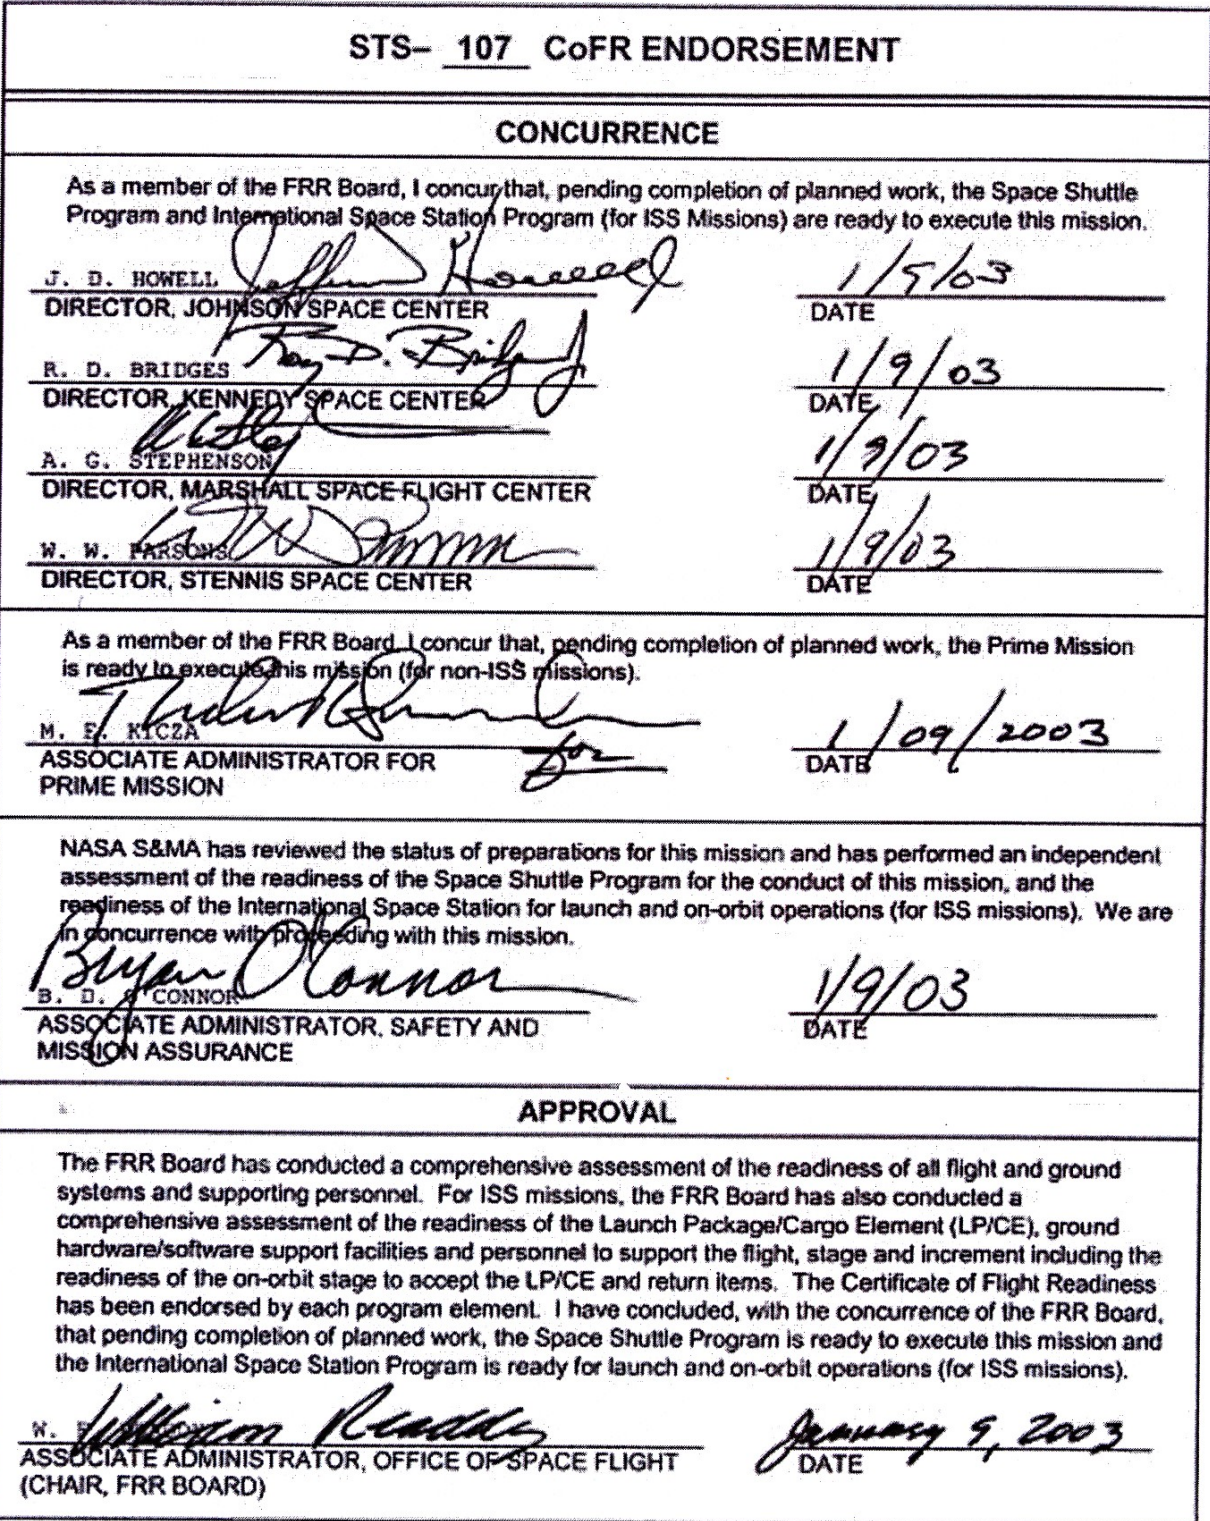 STS– 107 CoFR ENDORSEMENT
CONCURRENCE
As a member of the FRR Board, I concur that, pending completion of planned work, the Space Shuttle
Program and International Space Station Program (for ISS Missions) are ready to execute this mission.
J. D. HOWELL Jefferson Howell 1/9/03
DIRECTOR, JOHNSON SPACE CENTER DATE
R. D. BRIDGES Roy D. Bridges Jr 1/9/03
DIRECTOR, KENNEDY SPACE CENTER DATE
A. G. STEPHENSON 1/9/03
DIRECTOR, MARSHALL SPACE FLIGHT CENTER DATE
W. W. PARSONS 1/9/03
DIRECTOR, STENNIS SPACE CENTER DATE
As a member of the FRR Board, I concur that, pending completion of planned work, the Prime Mission
is ready to execute this mission (for non-ISS missions).
M. E. KICZA 1/09/2003
ASSOCIATE ADMINISTRATOR FOR for DATE
PRIME MISSION
NASA S&MA has reviewed the status of preparations for this mission and has performed an independent
assessment of the readiness of the Space Shuttle Program for the conduct of this mission, and the
readiness of the International Space Station for launch and on-orbit operations (for ISS missions). We are
in concurrence with proceeding with this mission.
B. D. O'CONNOR Bryan O'Connor 1/9/03
ASSOCIATE ADMINISTRATOR, SAFETY AND DATE
MISSION ASSURANCE
APPROVAL
The FRR Board has conducted a comprehensive assessment of the readiness of all flight and ground
systems and supporting personnel. For ISS missions, the FRR Board has also conducted a
comprehensive assessment of the readiness of the Launch Package/Cargo Element (LP/CE), ground
hardware/software support facilities and personnel to support the flight, stage and increment including the
readiness of the on-orbit stage to accept the LP/CE and return items. The Certificate of Flight Readiness
has been endorsed by each program element. I have concluded, with the concurrence of the FRR Board,
that pending completion of planned work, the Space Shuttle Program is ready to execute this mission and
the International Space Station Program is ready for launch and on-orbit operations (for ISS missions).
W. Readdy January 9, 2003
ASSOCIATE ADMINISTRATOR, OFFICE OF SPACE FLIGHT DATE
(CHAIR, FRR BOARD)